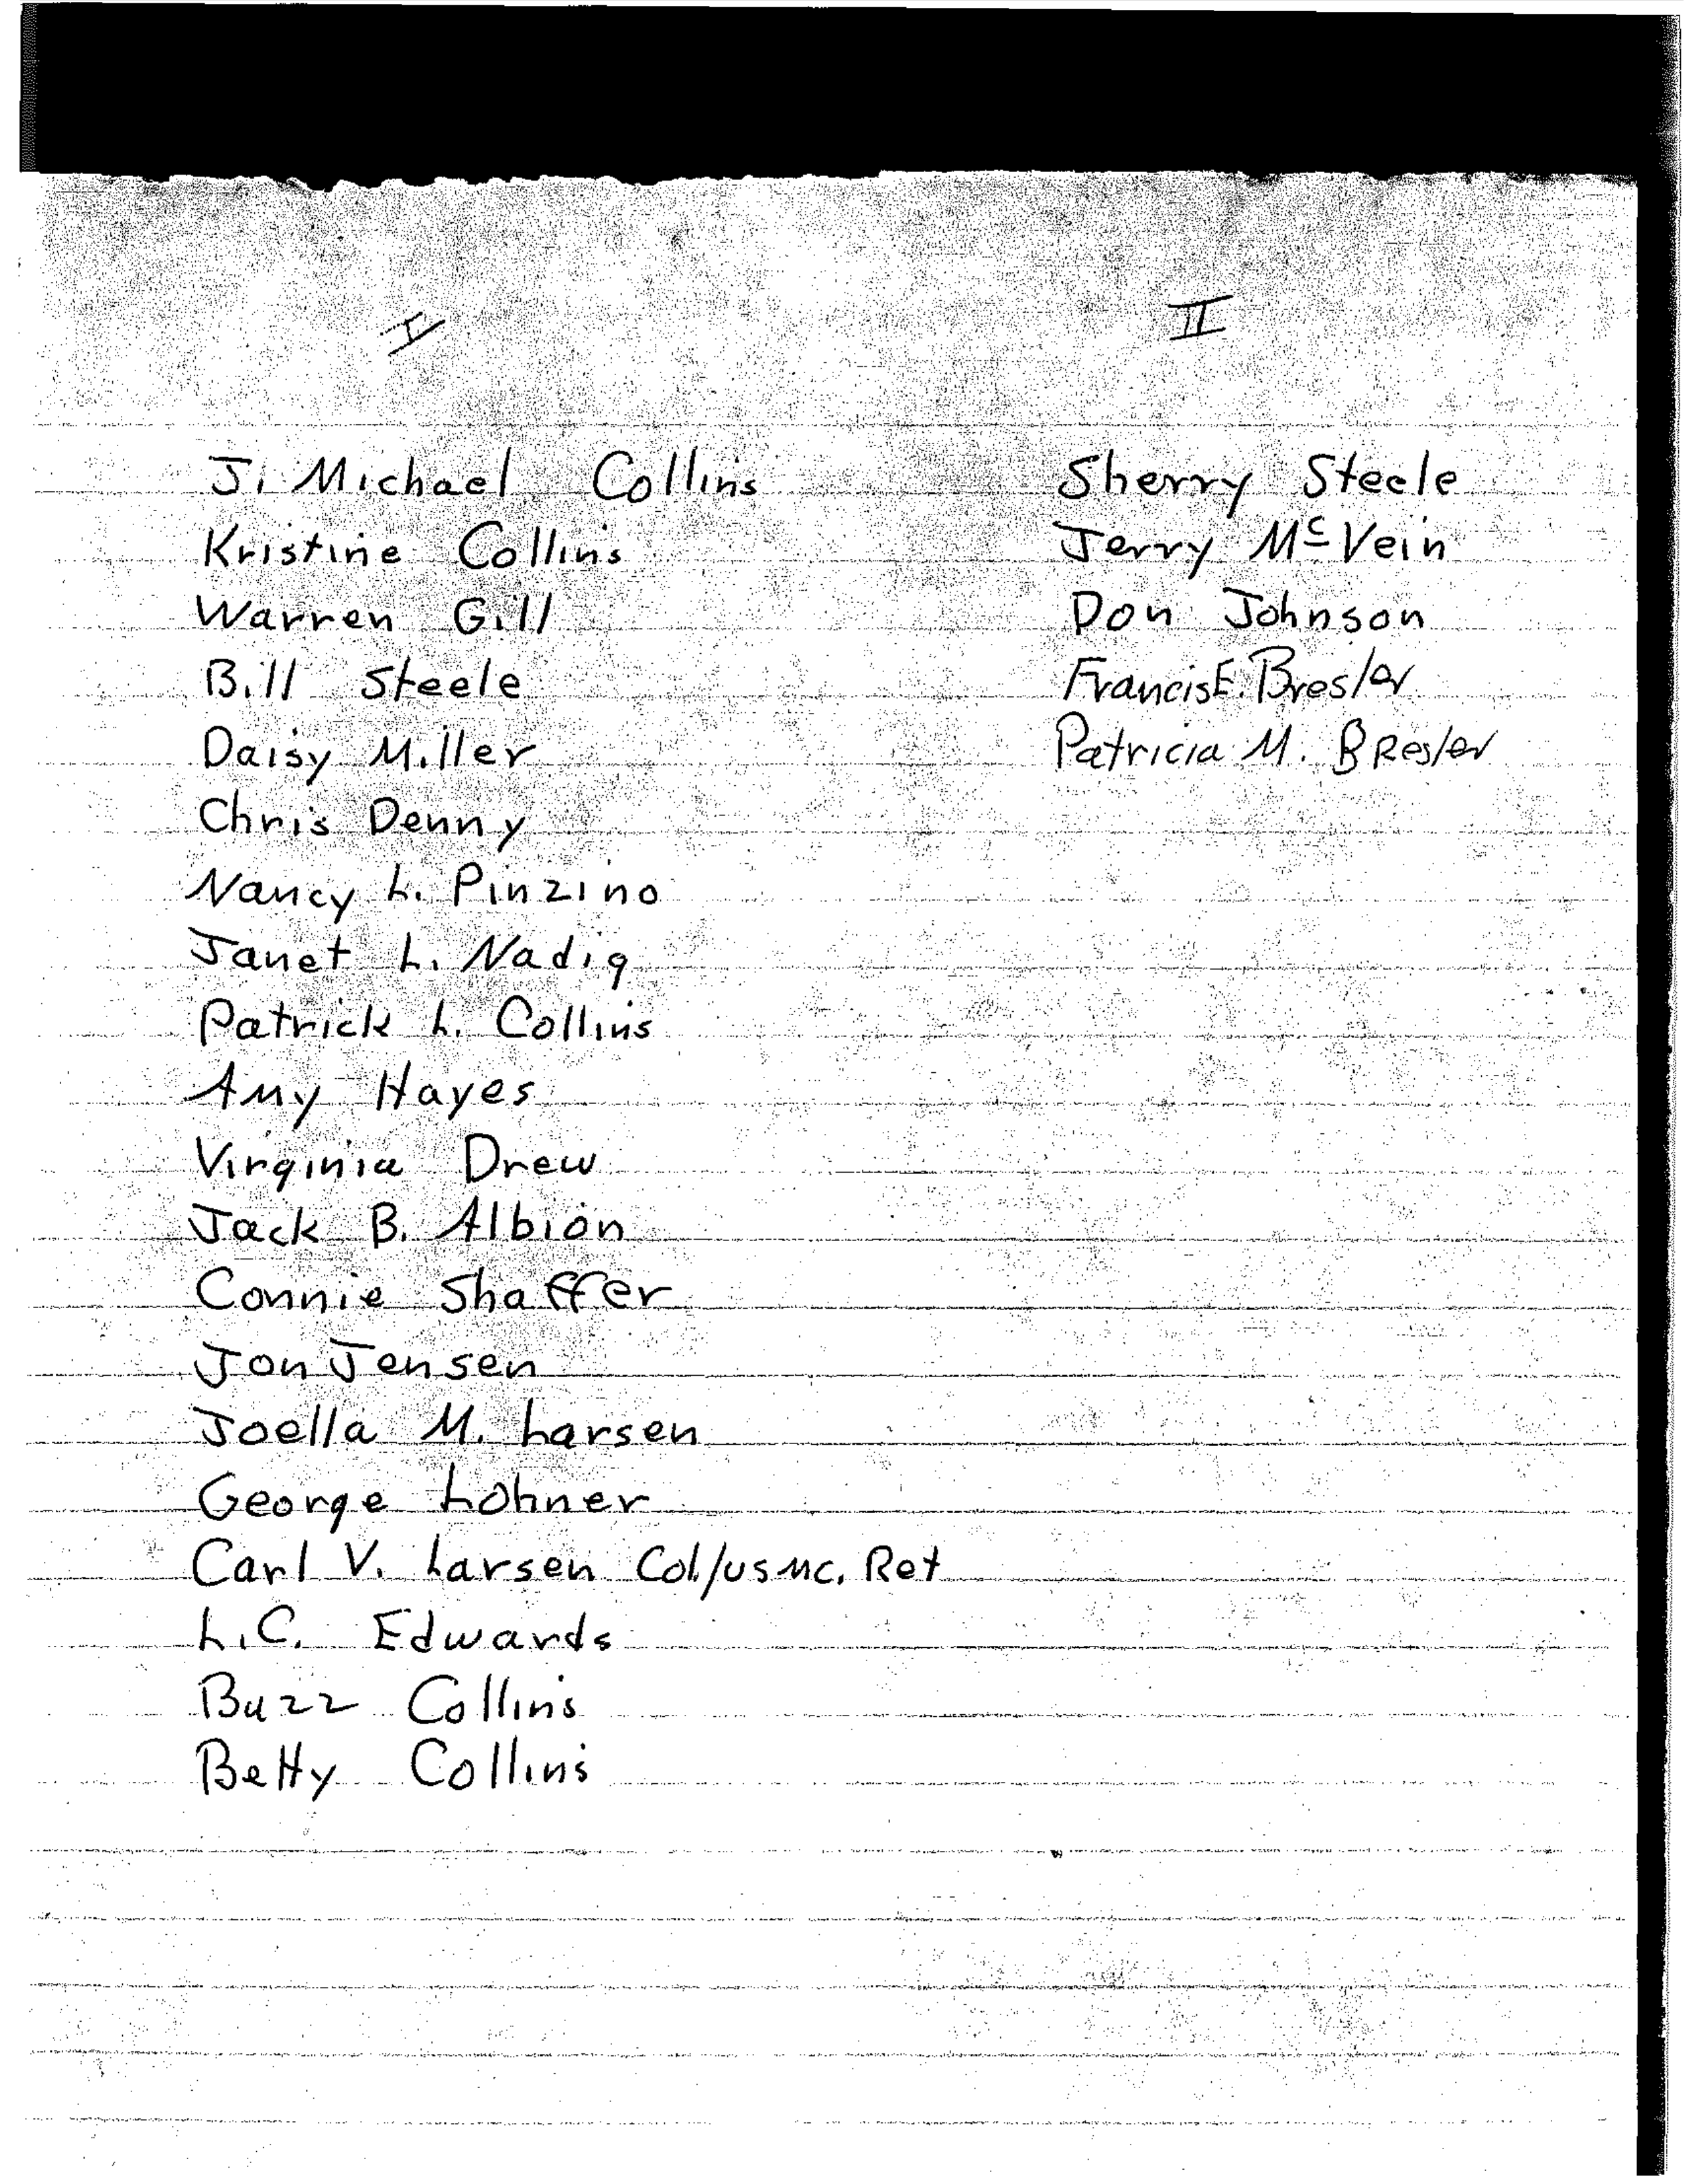 I
J. Michael Collins
Kristine Collins
Warren Gill
Bill Steele
Daisy Miller
Chris Denny
Nancy L. Pinzino
Janet L. Nadig
Patrick L. Collins
Amy Hayes
Virginia Drew
Jack B. Albion
Connie Shaffer
Jon Jensen
Joella M. Larsen
George Lohner
Carl V. Larsen Col/USMC. Ret
L.C. Edwards
Buzz Collins
Betty Collins
II
Sherry Steele
Jerry McVein
Don Johnson
Francis E. Bresler
Patricia M. Bresler